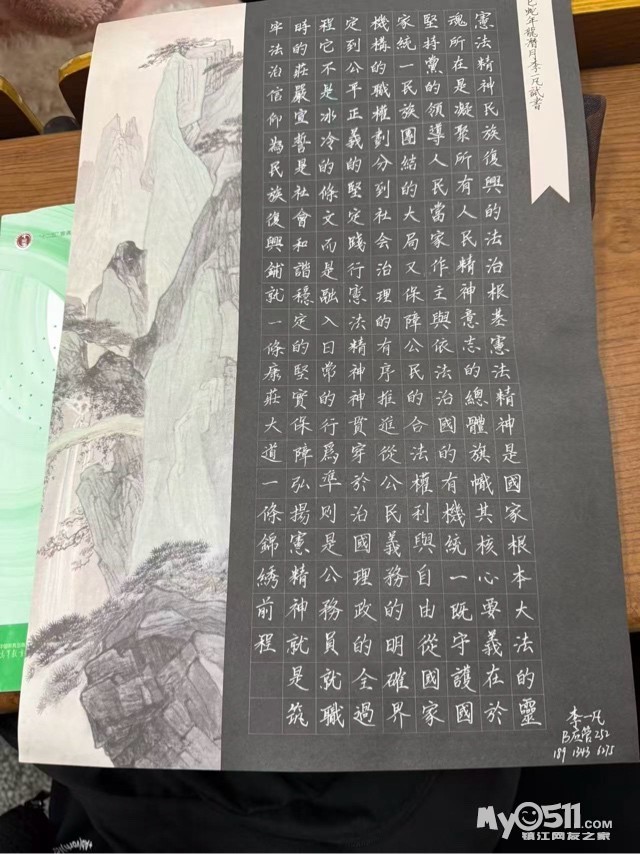 巳蛇年龍潛月李一凡試書
憲法精神民族復興的法治根基憲法精神是國家根本大法的靈
魂所在是凝聚所有人民精神意志的總體旗幟其核心要義在於
堅持黨的領導人民當家作主與依法治國的有機統一既守護國
家統一民族團結的大局又保障公民的合法權利與自由從國家
機構的職權劃分到社会治理的有序推進從公民義務的明確界
定到公平正義的堅定踐行憲法精神神貫穿於治國理政的全過
程它不是冰冷的條文而是融入日常的行爲準則是公務員就職
時的莊嚴宣誓是社會和諧穩定的堅實保障弘揚憲精神就是筑
牢法治信仰為民族復興鋪就一條康莊大道一條錦綉前程
李一凡
B应管252
189 1343 6275
My0511.com
镇江网友之家